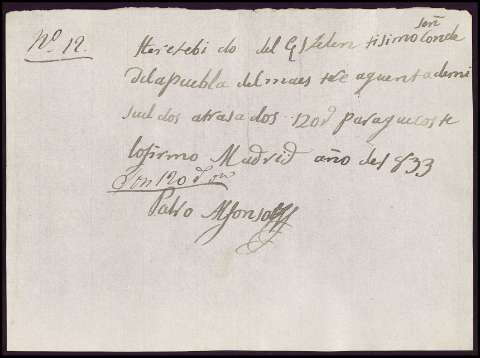 Nº 12.
He resebi do del Esselen tisimo señ Conde
de la Puebla del maes tre a quenta de mi
suel dos atrasa dos 120 r para que coste
lo firmo Madrid año de 1833
Son 120 r on
Pablo Alfonso